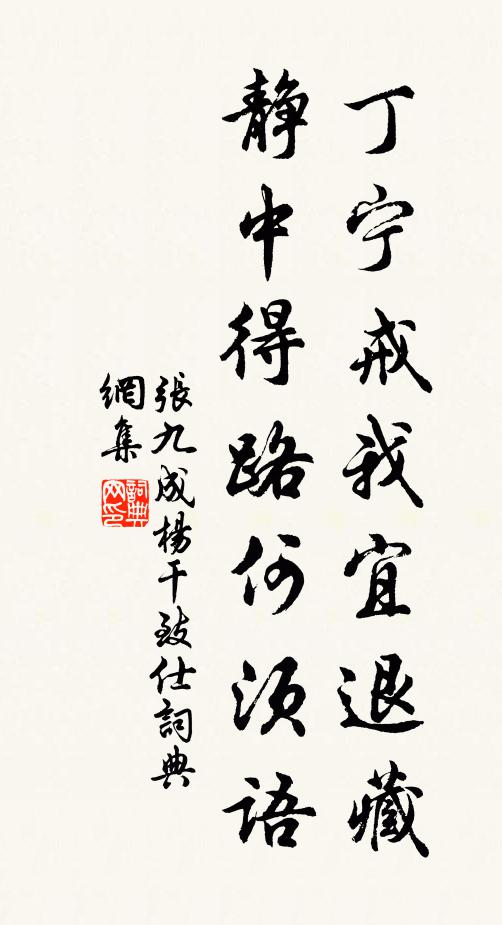 丁宁戒我宜退藏
静中得路何须语
張九成楊干致仕詞典
網集
詞典
网印